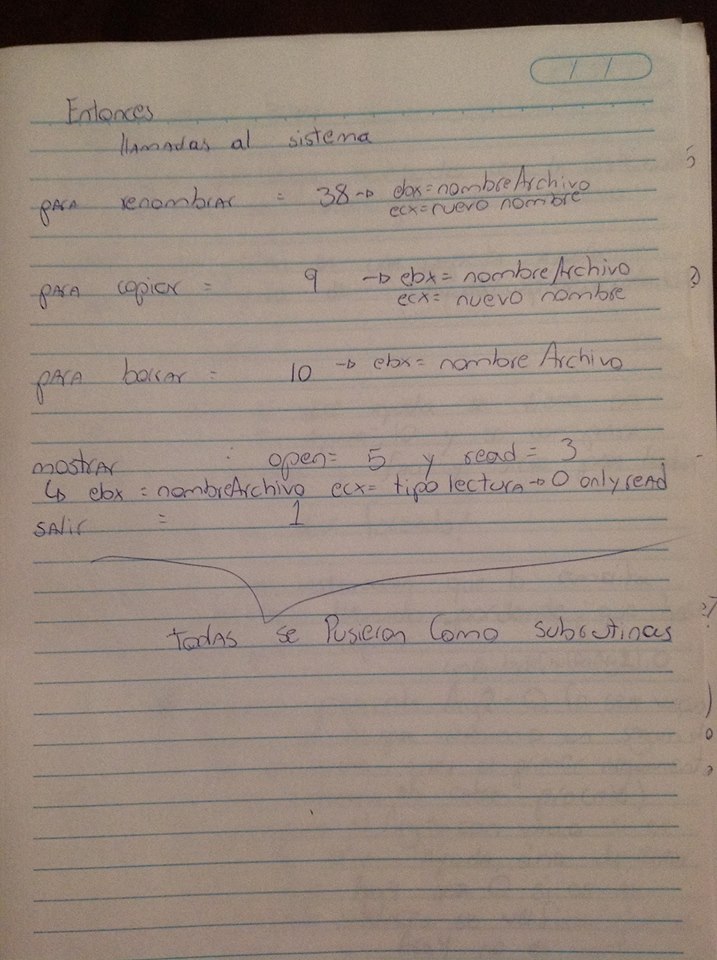 / /
Entonces
llamadas al sistema
para renombrar = 38 → ebx = nombreArchivo
ecx = nuevo nombre
para copiar = 9 → ebx = nombreArchivo
ecx = nuevo nombre
para borrar = 10 → ebx = nombre Archivo
mostrar : open = 5 y read = 3
↳ ebx = nombreArchivo ecx = tipo lectura → 0 only read
salir = 1
todas se pusieron como subrutinas